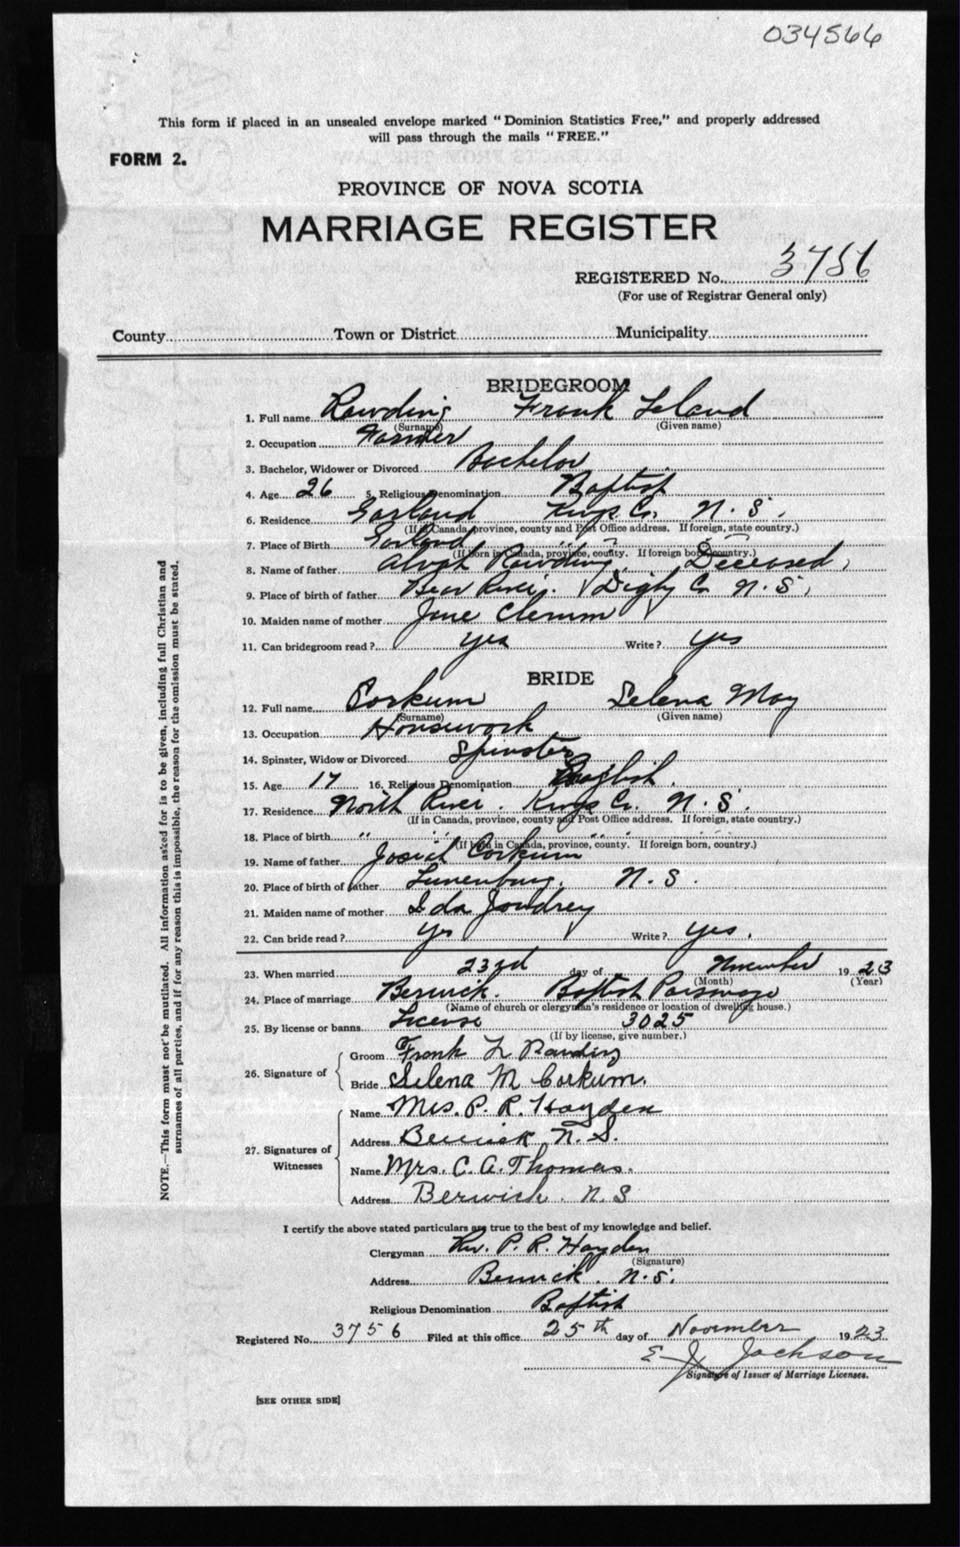 034566
This form if placed in an unsealed envelope marked "Dominion Statistics Free," and properly addressed
will pass through the mails "FREE."
FORM 2.
PROVINCE OF NOVA SCOTIA
MARRIAGE REGISTER
REGISTERED No. 3756
(For use of Registrar General only)
County Town or District Municipality
BRIDEGROOM
1. Full name Rawding Frank Leland
(Surname) (Given name)
2. Occupation Farmer
3. Bachelor, Widower or Divorced Bachelor
4. Age 26 5. Religious Denomination Baptist
6. Residence Garland Kings Co. N.S.
(If in Canada, province, county and Post Office address. If foreign, state country.)
7. Place of Birth Garland " " "
(If born in Canada, province, county. If foreign born, country.)
8. Name of father Rawding Deceased,
9. Place of birth of father Bear River. Digby Co N.S,
10. Maiden name of mother Jane
11. Can bridegroom read? yes Write? yes
BRIDE
12. Full name Corkum Selena May
(Surname) (Given name)
13. Occupation Housework
14. Spinster, Widow or Divorced Spinster
15. Age 17 16. Religious Denomination English.
17. Residence North River. Kings Co. N.S.
(If in Canada, province, county and Post Office address. If foreign, state country.)
18. Place of birth " " " " "
(If born in Canada, province, county. If foreign born, country.)
19. Name of father Josiah Corkum
20. Place of birth of father Lunenburg. N.S.
21. Maiden name of mother Ida Joudrey
22. Can bride read? yes Write? yes.
23. When married 23rd day of November 1923
(Month) (Year)
24. Place of marriage Berwick. Baptist Parsonage
(Name of church or clergyman's residence or location of dwelling house.)
25. By license or banns License 3025
(If by license, give number.)
26. Signature of
Groom Frank L Rawding
Bride Selena M Corkum.
27. Signatures of Witnesses
Name Mrs. P. R. Hayden
Address Berwick N.S.
Name Mrs. C. A. Thomas.
Address Berwick. N.S
I certify the above stated particulars are true to the best of my knowledge and belief.
Clergyman Rev. P. R. Hayden
(Signature)
Address Berwick. N.S.
Religious Denomination Baptist
Registered No. 3756 Filed at this office 25th day of November 1923
E J Jackson
Signature of Issuer of Marriage Licenses.
[SEE OTHER SIDE]
NOTE.—This form must not be mutilated. All information asked for is to be given, including full Christian and
surnames of all parties, and if for any reason this is impossible, the reason for the omission must be stated.